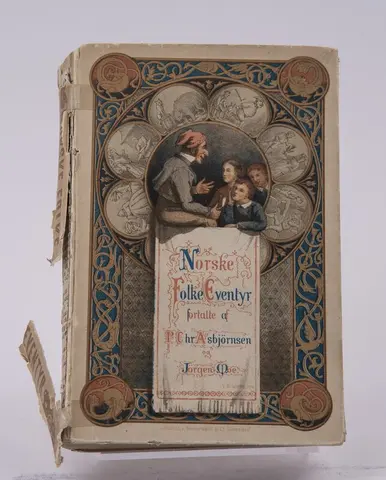 Norske
Folke Eventyr
fortalte af
P. Chr. Asbjörnsen
og
Jörgen Moe